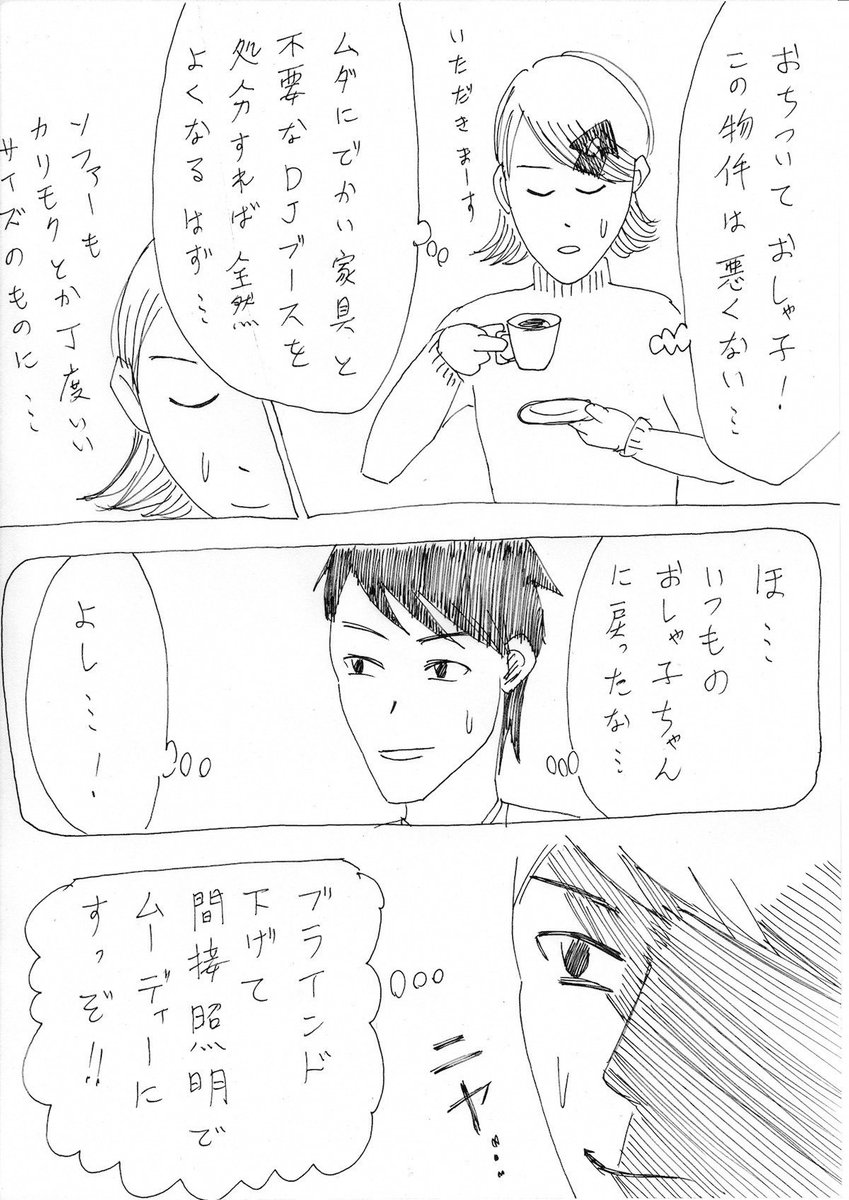 おちついておしゃ子!
この物件は悪くない…
いただきまーす
ムダにでかい家具と
不要なDJブースを
処分すれば全然
よくなるはず…
ソファーも
カリモクとか丁度いい
サイズのものに…
ほ…
いつもの
おしゃ子ちゃん
に戻ったな…
よし…!
ブラインド
下げて
間接照明で
ムーディーに
すっぞ!!
ニヤ…